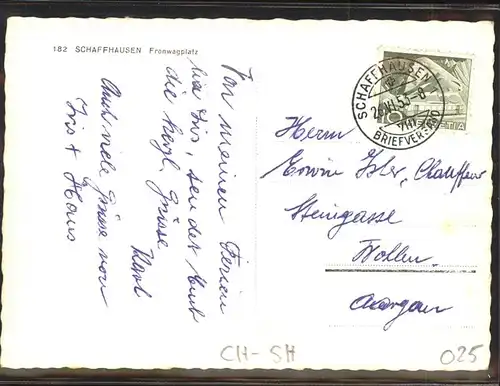 182 SCHAFFHAUSEN Fronwagplatz
Von meinen Ferien
bei Iris, sendet Euch
die herzl. Grüsse
Karl
Auch viele Grüsse von
Iris + Hans
SCHAFFHAUSEN
BRIEFVERSAND
10
HELVETIA
Herrn
Erwin Isler, Chauffeur
Steingasse
Wohlen
Aargau
CH-SH
025